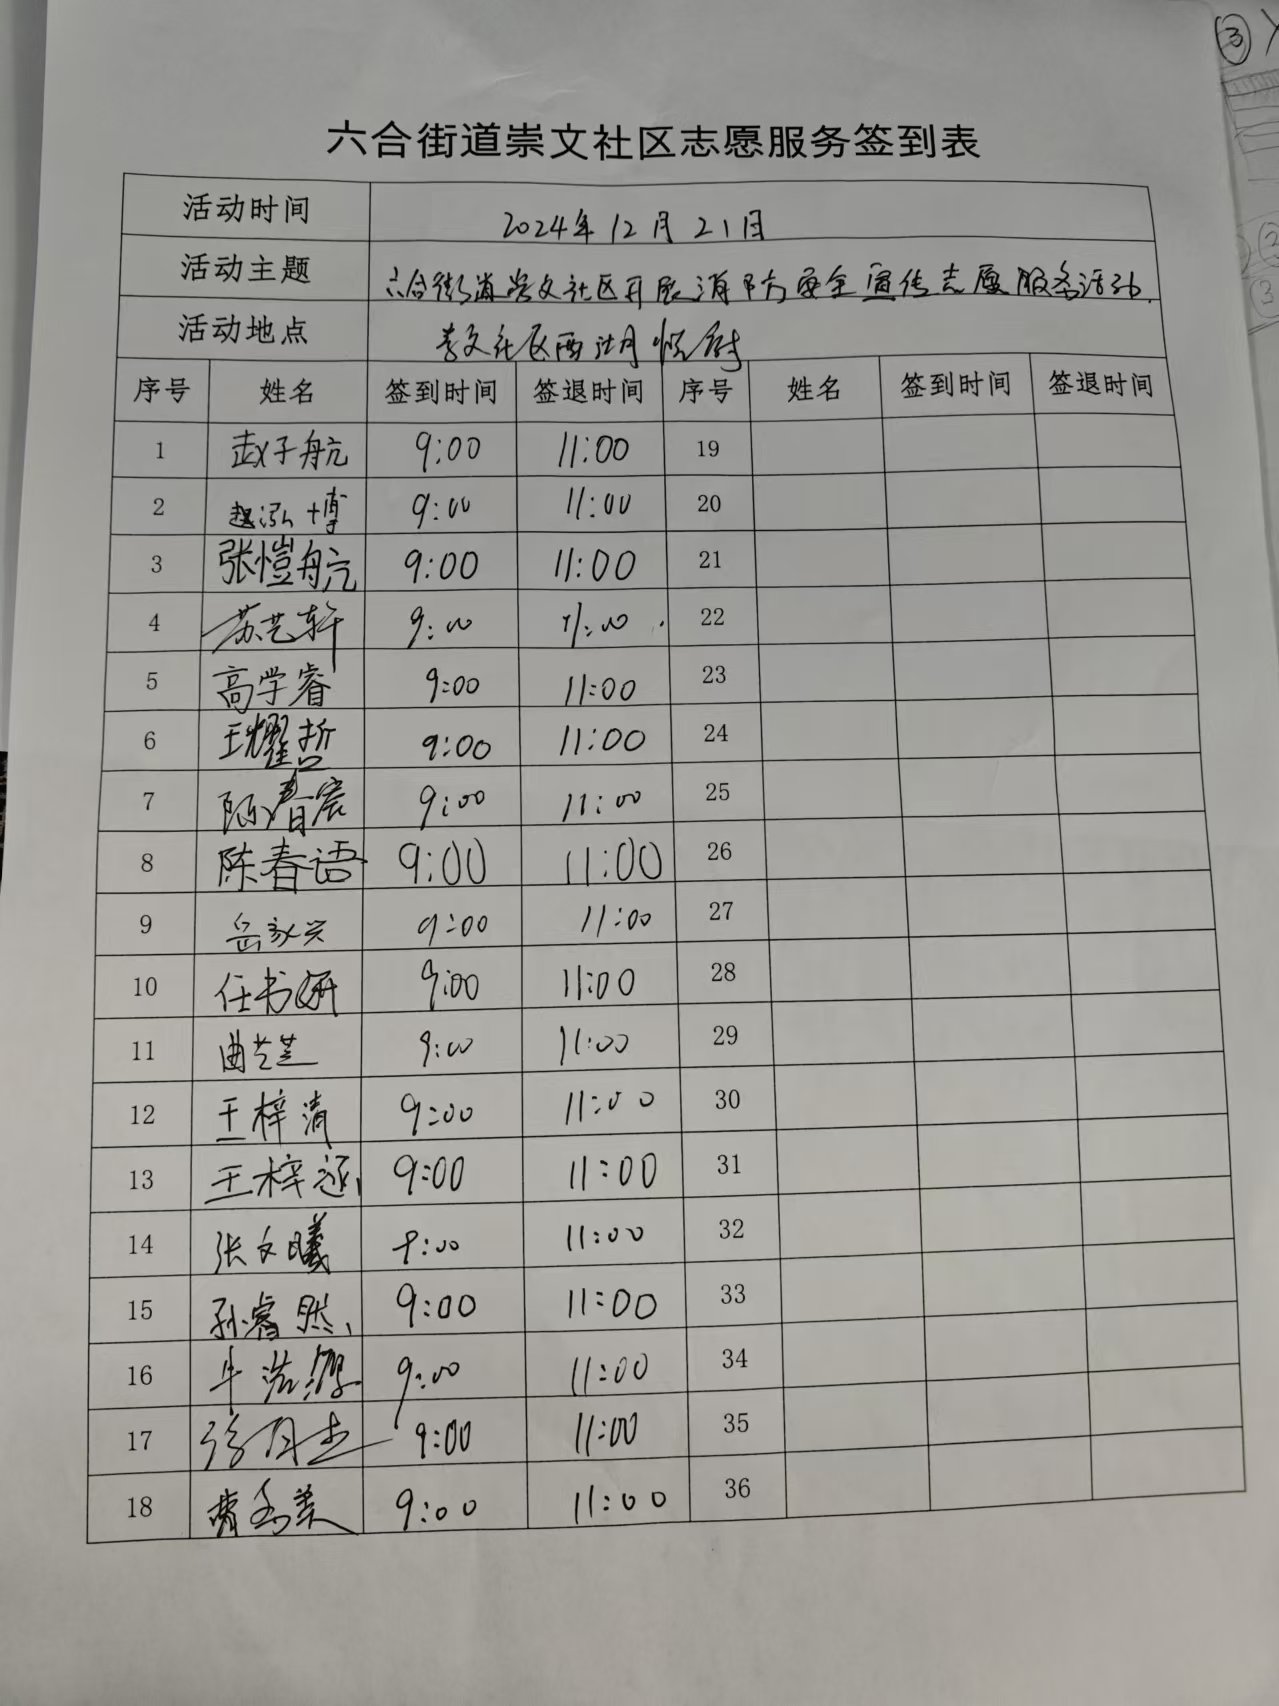 六合街道崇文社区志愿服务签到表
活动时间 2024年12月21日
活动主题 六合街道崇文社区开展消防安全宣传志愿服务活动.
活动地点 崇文社区西湖悦府
序号 姓名 签到时间 签退时间 序号 姓名 签到时间 签退时间
1 赵子航 9:00 11:00 19
2 赵泓博 9:00 11:00 20
3 张愷航 9:00 11:00 21
4 苏艺轩 9:00 11:00 22
5 高学睿 9:00 11:00 23
6 王耀哲 9:00 11:00 24
7 陈春宸 9:00 11:00 25
8 陈春语 9:00 11:00 26
9 岳家兴 9:00 11:00 27
10 任书妍 9:00 11:00 28
11 曲艺芝 9:00 11:00 29
12 王梓清 9:00 11:00 30
13 王梓 9:00 11:00 31
14 张文曦 9:00 11:00 32
15 孙睿然 9:00 11:00 33
16 牛浩源 9:00 11:00 34
17 9:00 11:00 35
18 9:00 11:00 36
③
③